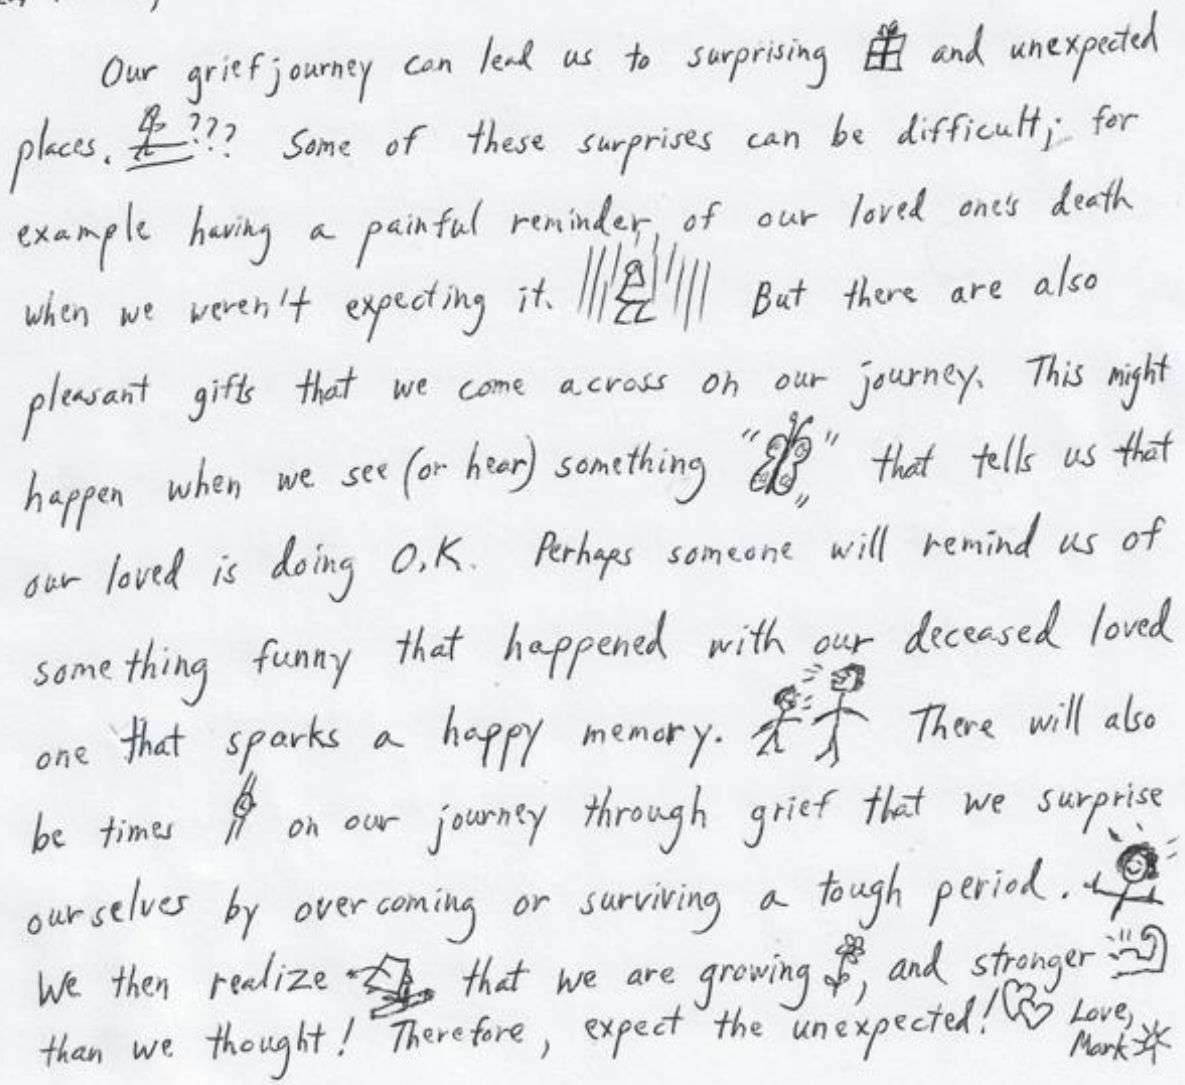 Our grief journey can lead us to surprising and unexpected
places. ??? Some of these surprises can be difficult; for
example having a painful reminder of our loved one's death
when we weren't expecting it. But there are also
pleasant gifts that we come across on our journey. This might
happen when we see (or hear) something " " that tells us that
our loved is doing O.K. Perhaps someone will remind us of
something funny that happened with our deceased loved
one that sparks a happy memory. There will also
be times on our journey through grief that we surprise
ourselves by overcoming or surviving a tough period.
We then realize that we are growing, and stronger
than we thought! Therefore, expect the unexpected! Love,
Mark